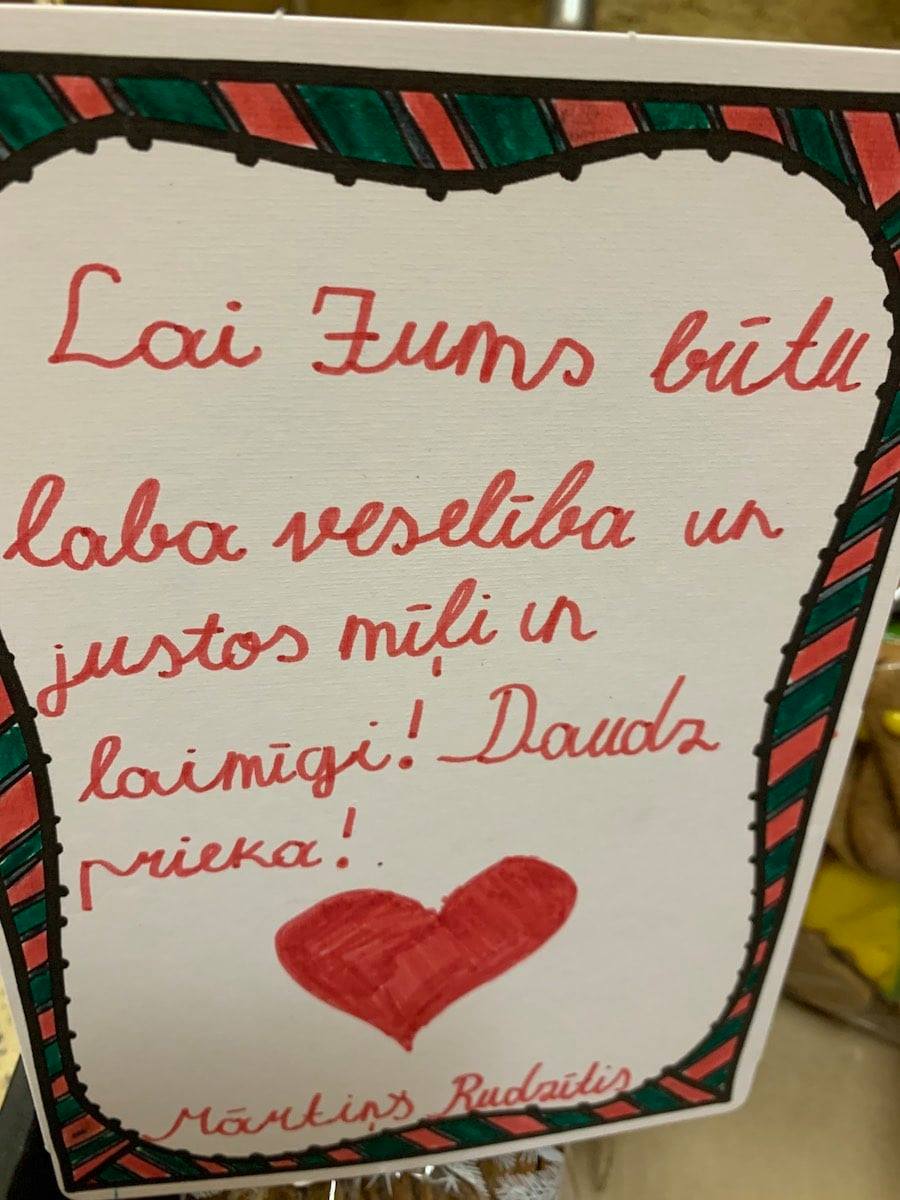 Lai Jums būtu
laba veselība un
justos mīļi un
laimīgi! Daudz
prieka!
Mārtiņš Rudzītis